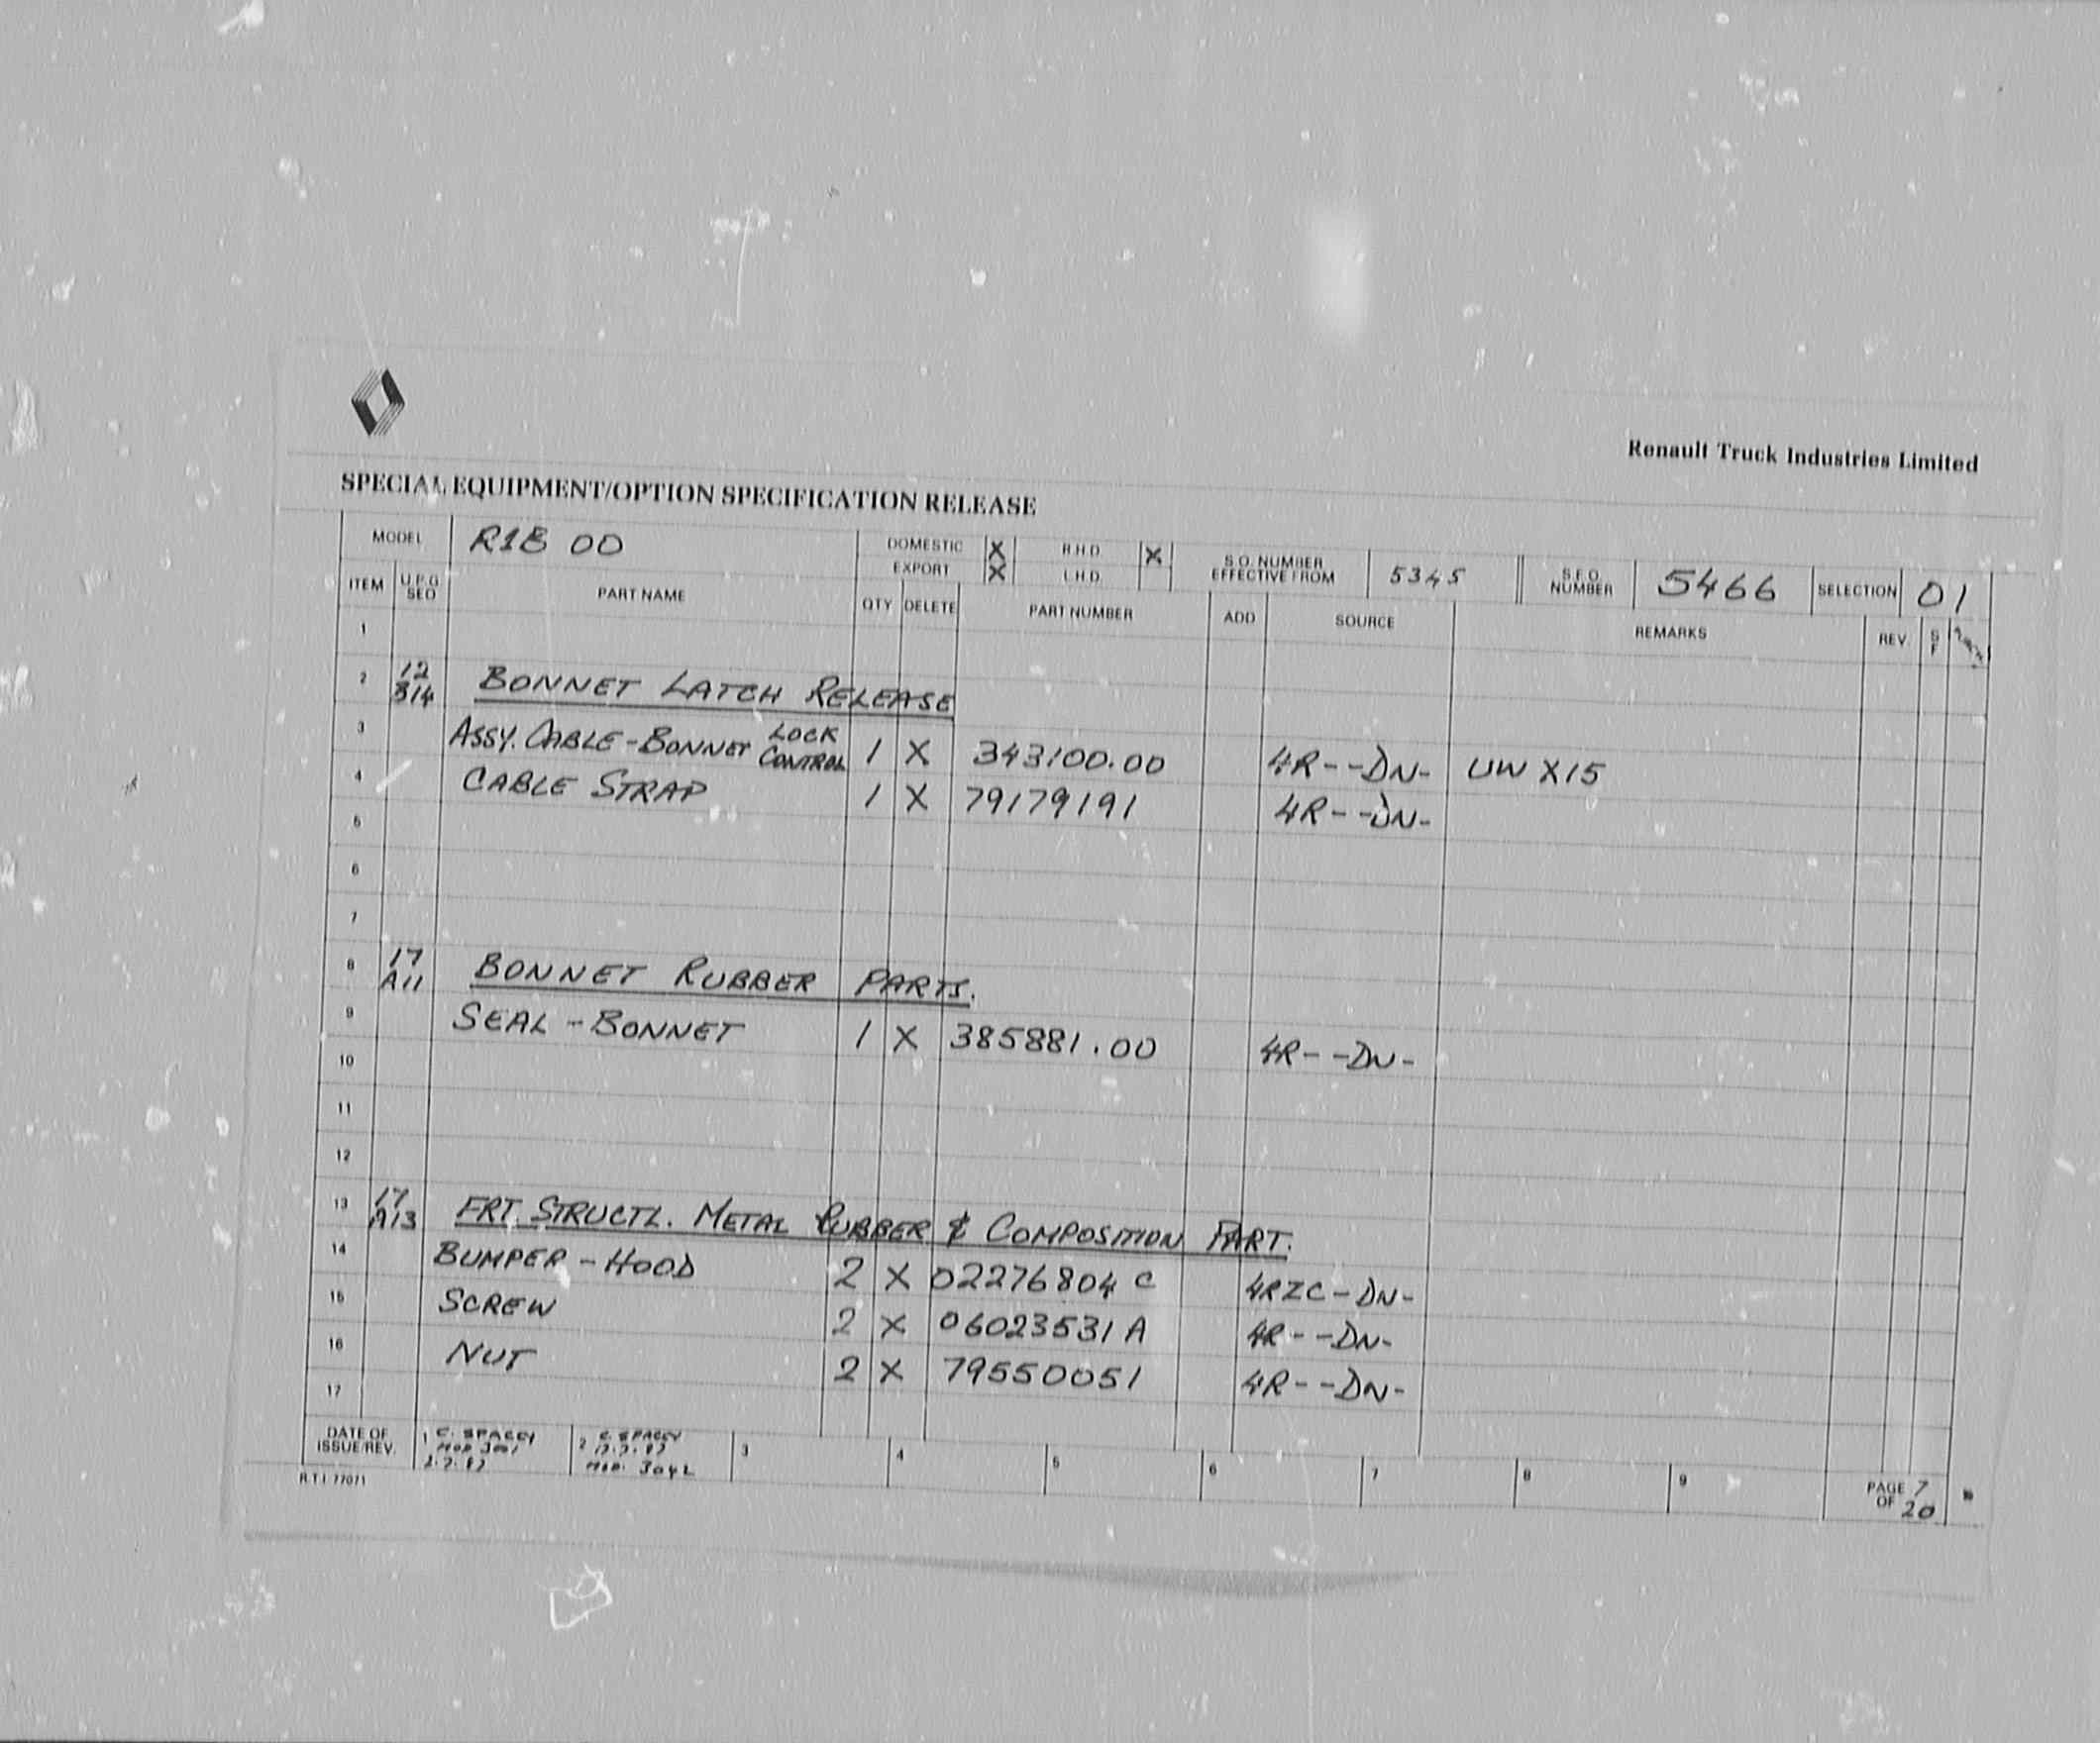 Renault Truck Industries Limited
SPECIAL EQUIPMENT/OPTION SPECIFICATION RELEASE
MODEL R1B 00 DOMESTIC X R.H.D. X S.O. NUMBER EFFECTIVE FROM 5345 S.E.O. NUMBER 5466 SELECTION 01
EXPORT X L.H.D.
ITEM U.P.G SEQ PART NAME QTY DELETE PART NUMBER ADD SOURCE REMARKS REV.
1
2 12 B14 BONNET LATCH RELEASE
3 ASSY. CABLE-BONNET LOCK CONTROL 1 X 343100.00 4R--DN- UW X15
4 CABLE STRAP 1 X 79179191 4R--DN-
5
6
7
8 17 A11 BONNET RUBBER PARTS.
9 SEAL-BONNET 1 X 385881.00 4R--DN-
10
11
12
13 17 A13 FRT. STRUCTL. METAL RUBBER & COMPOSITION PART.
14 BUMPER-HOOD 2 X 02276804 C 4RZC-DN-
15 SCREW 2 X 06023531 A 4R--DN-
16 NUT 2 X 79550051 4R--DN-
17
DATE OF ISSUE/REV. 1 C. SPACEY 2 C. SPACEY 3 4 5 6 7 8 9 PAGE 7 OF 20
R.T.I. 77071